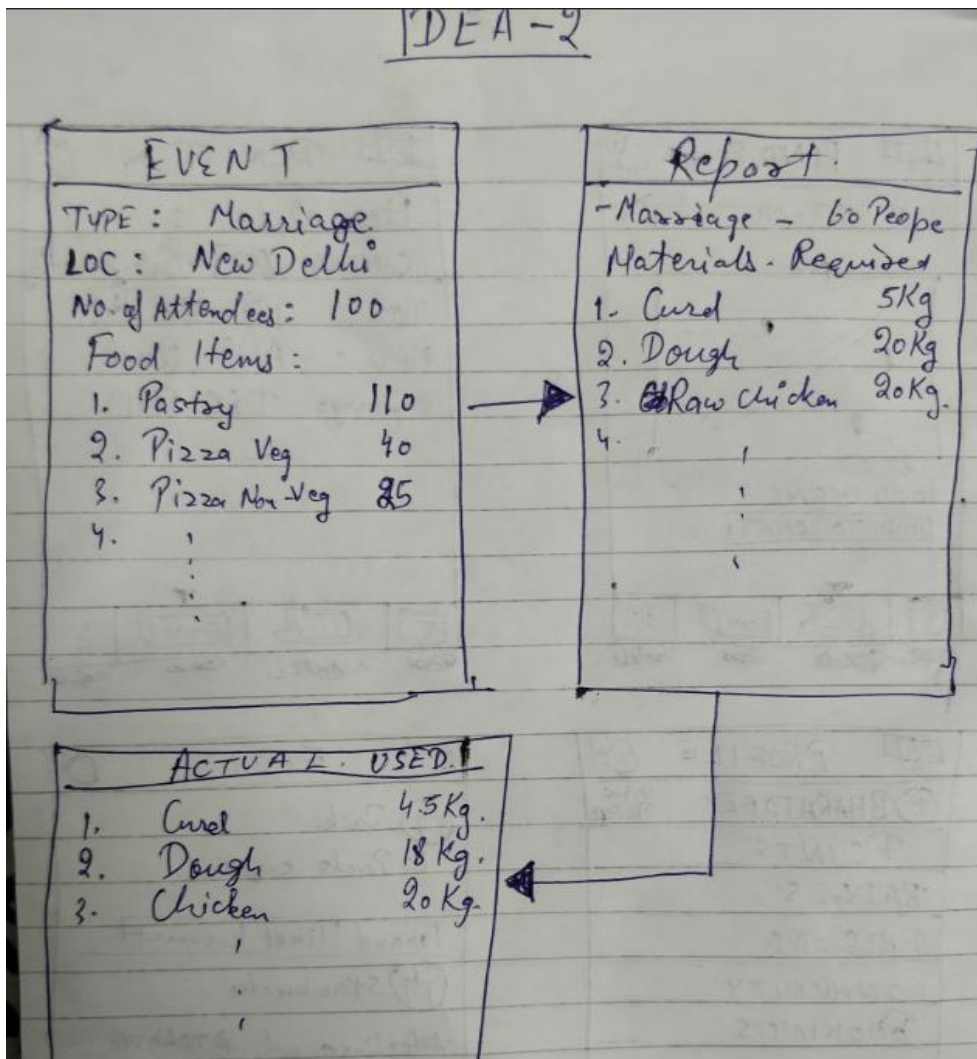 IDEA-2
EVENT
TYPE : Marriage.
LOC : New Delhi
No. of Attendees : 100
Food Items :
1. Pastry 110
2. Pizza Veg 40
3. Pizza Non-Veg 25
4.
Report.
- Marriage - 60 Peope
Materials. Required
1. Curd 5Kg
2. Dough 20Kg
3. Raw Chicken 20Kg.
4.
ACTUAL. USED.
1. Curd 4.5Kg.
2. Dough 18 Kg.
3. Chicken 20 Kg.